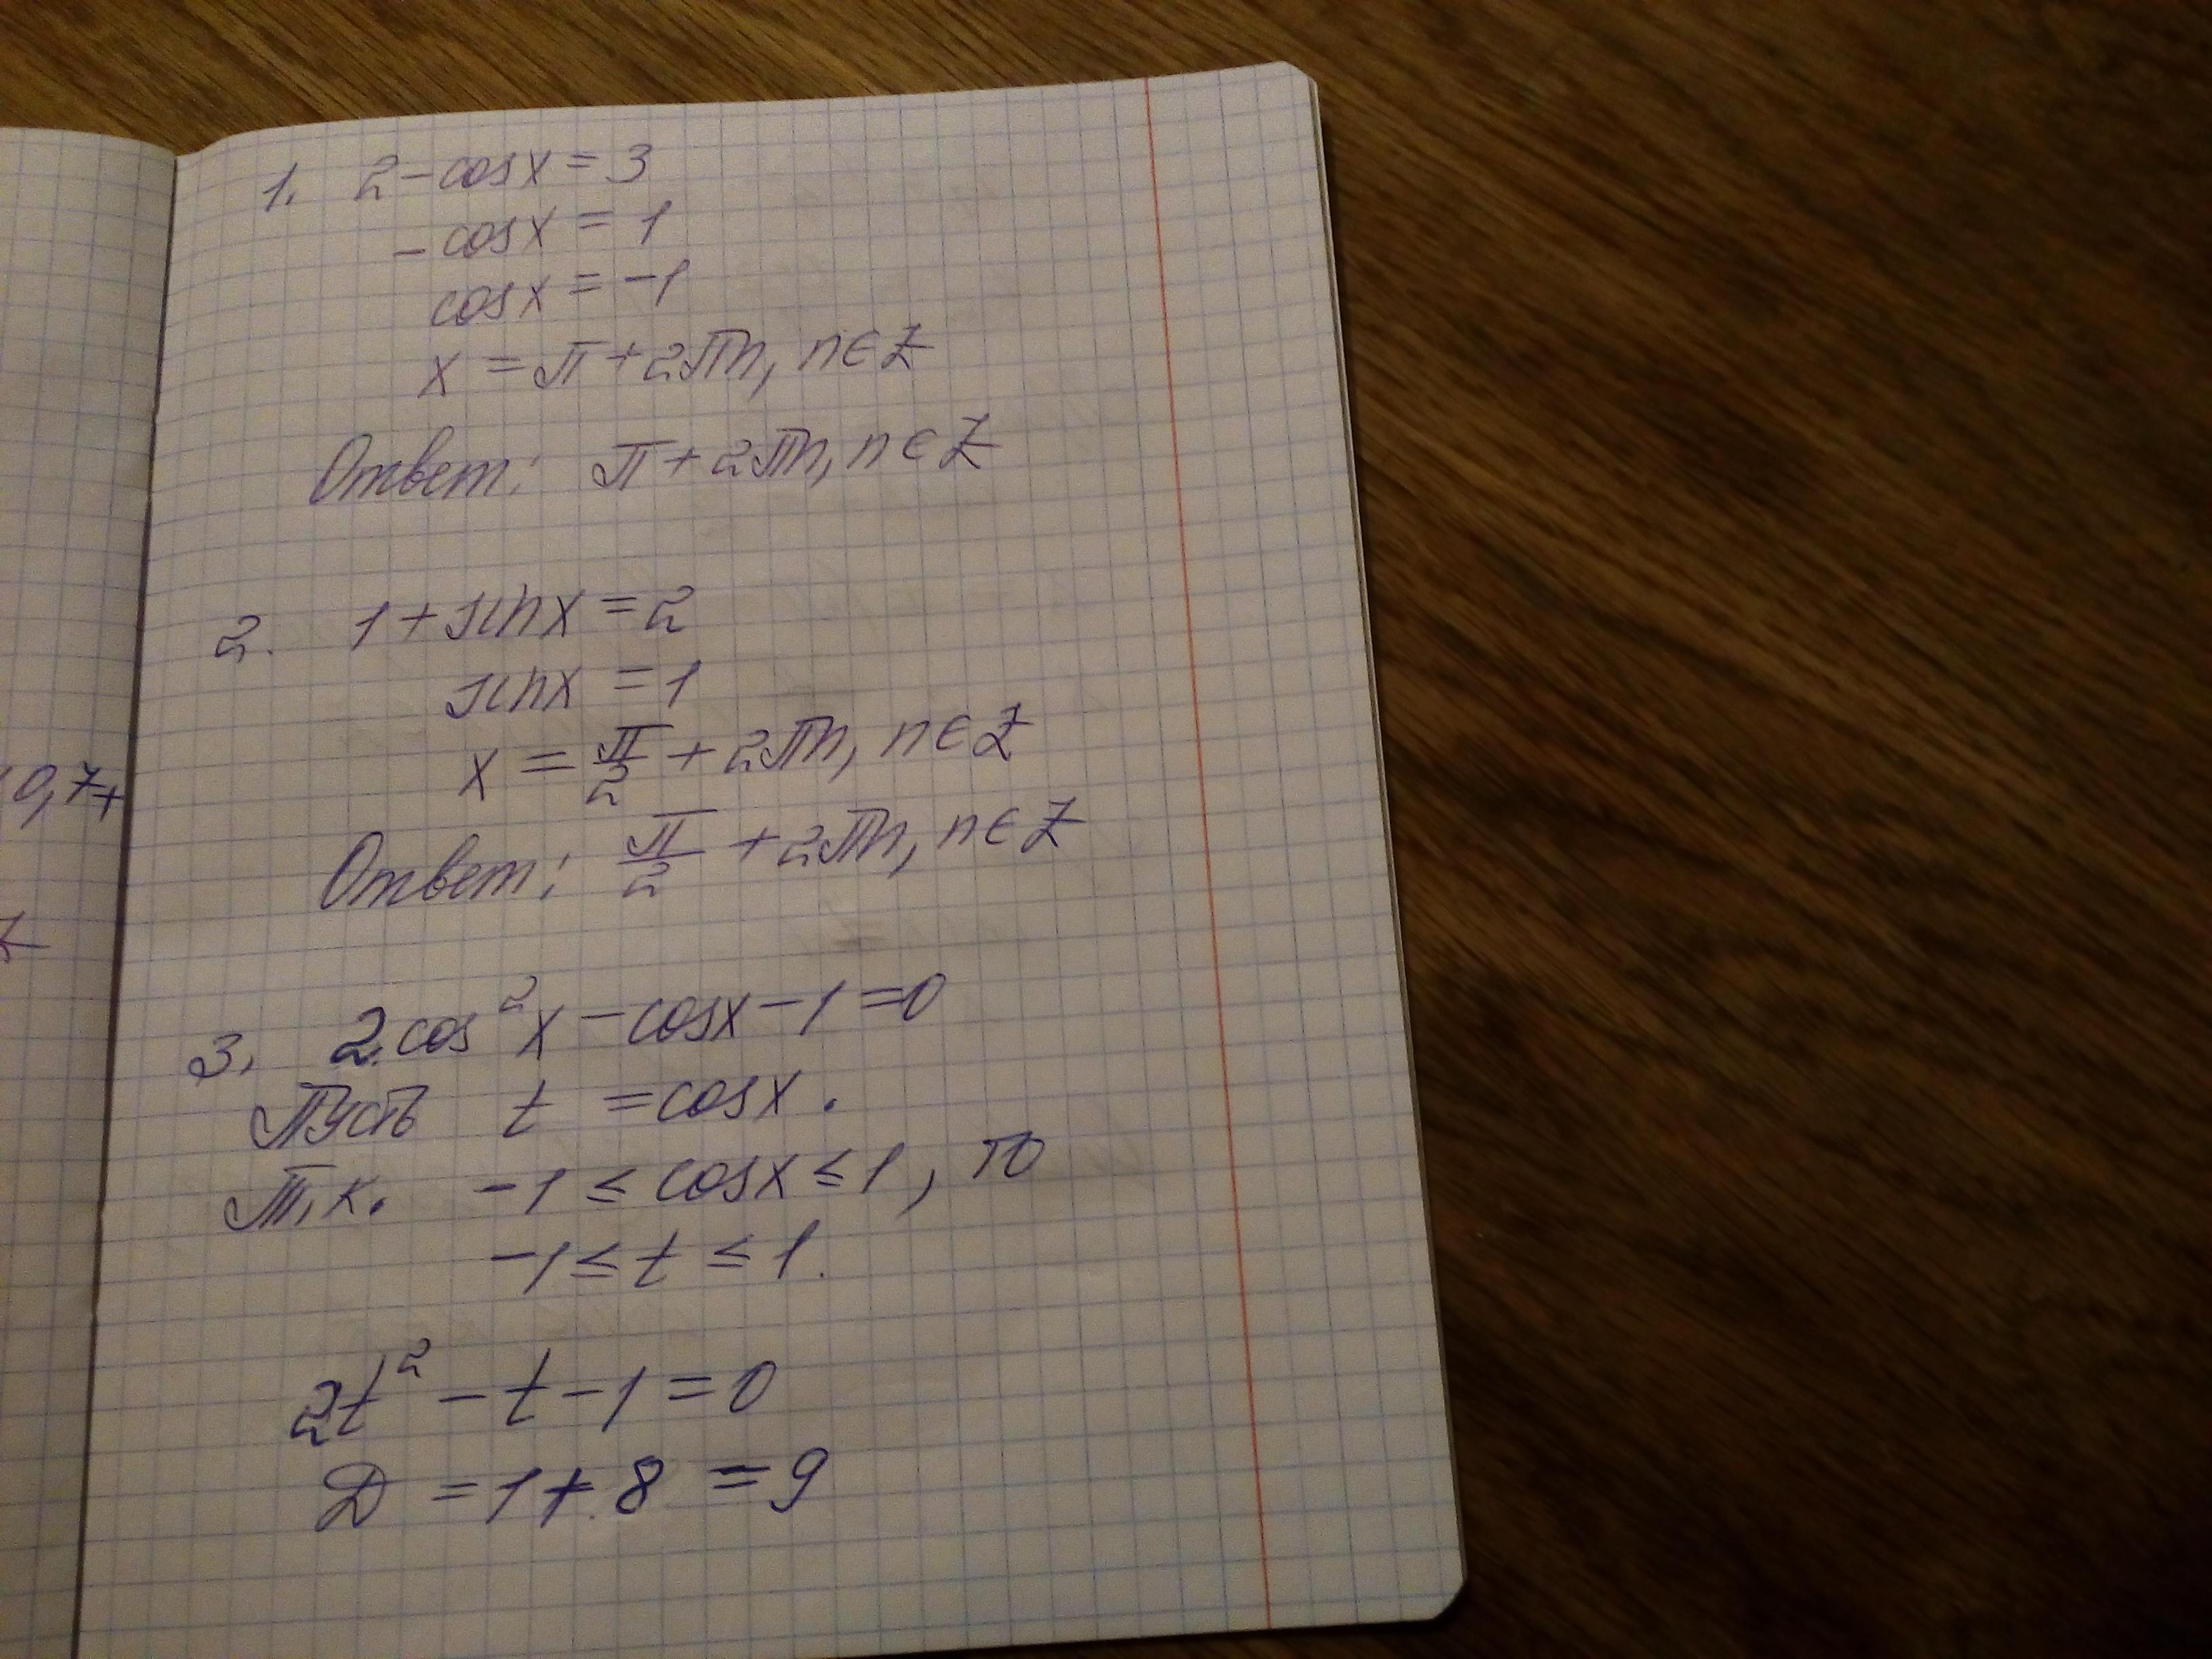 0,7+
1. 2 - cosx = 3
- cosx = 1
cosx = -1
x = π + 2πn, n ∈ Z
Ответ: π + 2πn, n ∈ Z
2. 1 + sinx = 2
sinx = 1
x = π/2 + 2πn, n ∈ Z
Ответ: π/2 + 2πn, n ∈ Z
3. 2cos²x - cosx - 1 = 0
Пусть t = cosx.
Т.к. -1 ≤ cosx ≤ 1, то
-1 ≤ t ≤ 1.
2t² - t - 1 = 0
D = 1 + 8 = 9